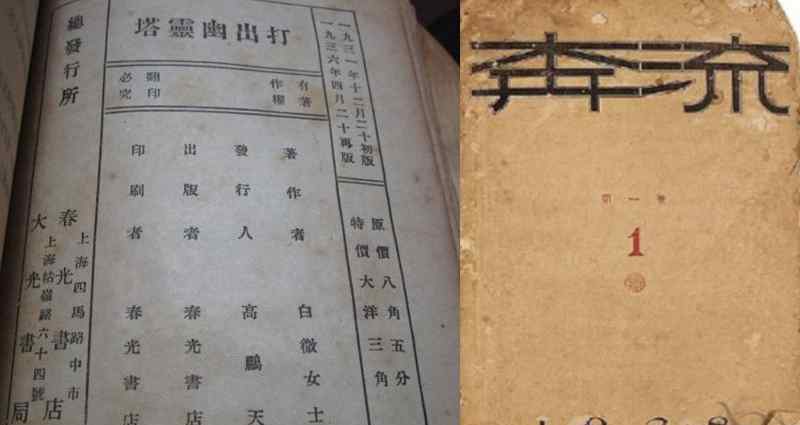 一九三一年十二月二十初版
一九三六年四月二十再版
原價八角五分
特價大洋三角
打出幽靈塔
有著
作權
翻印
必究
著作者 白微女士
發行人 高鵬天
出版者 春光書店
印刷者 春光書店
總發行所
春光書店
上海四馬路中市
大光書局
上海牯嶺路六十四號
奔流
第一卷
1
1928